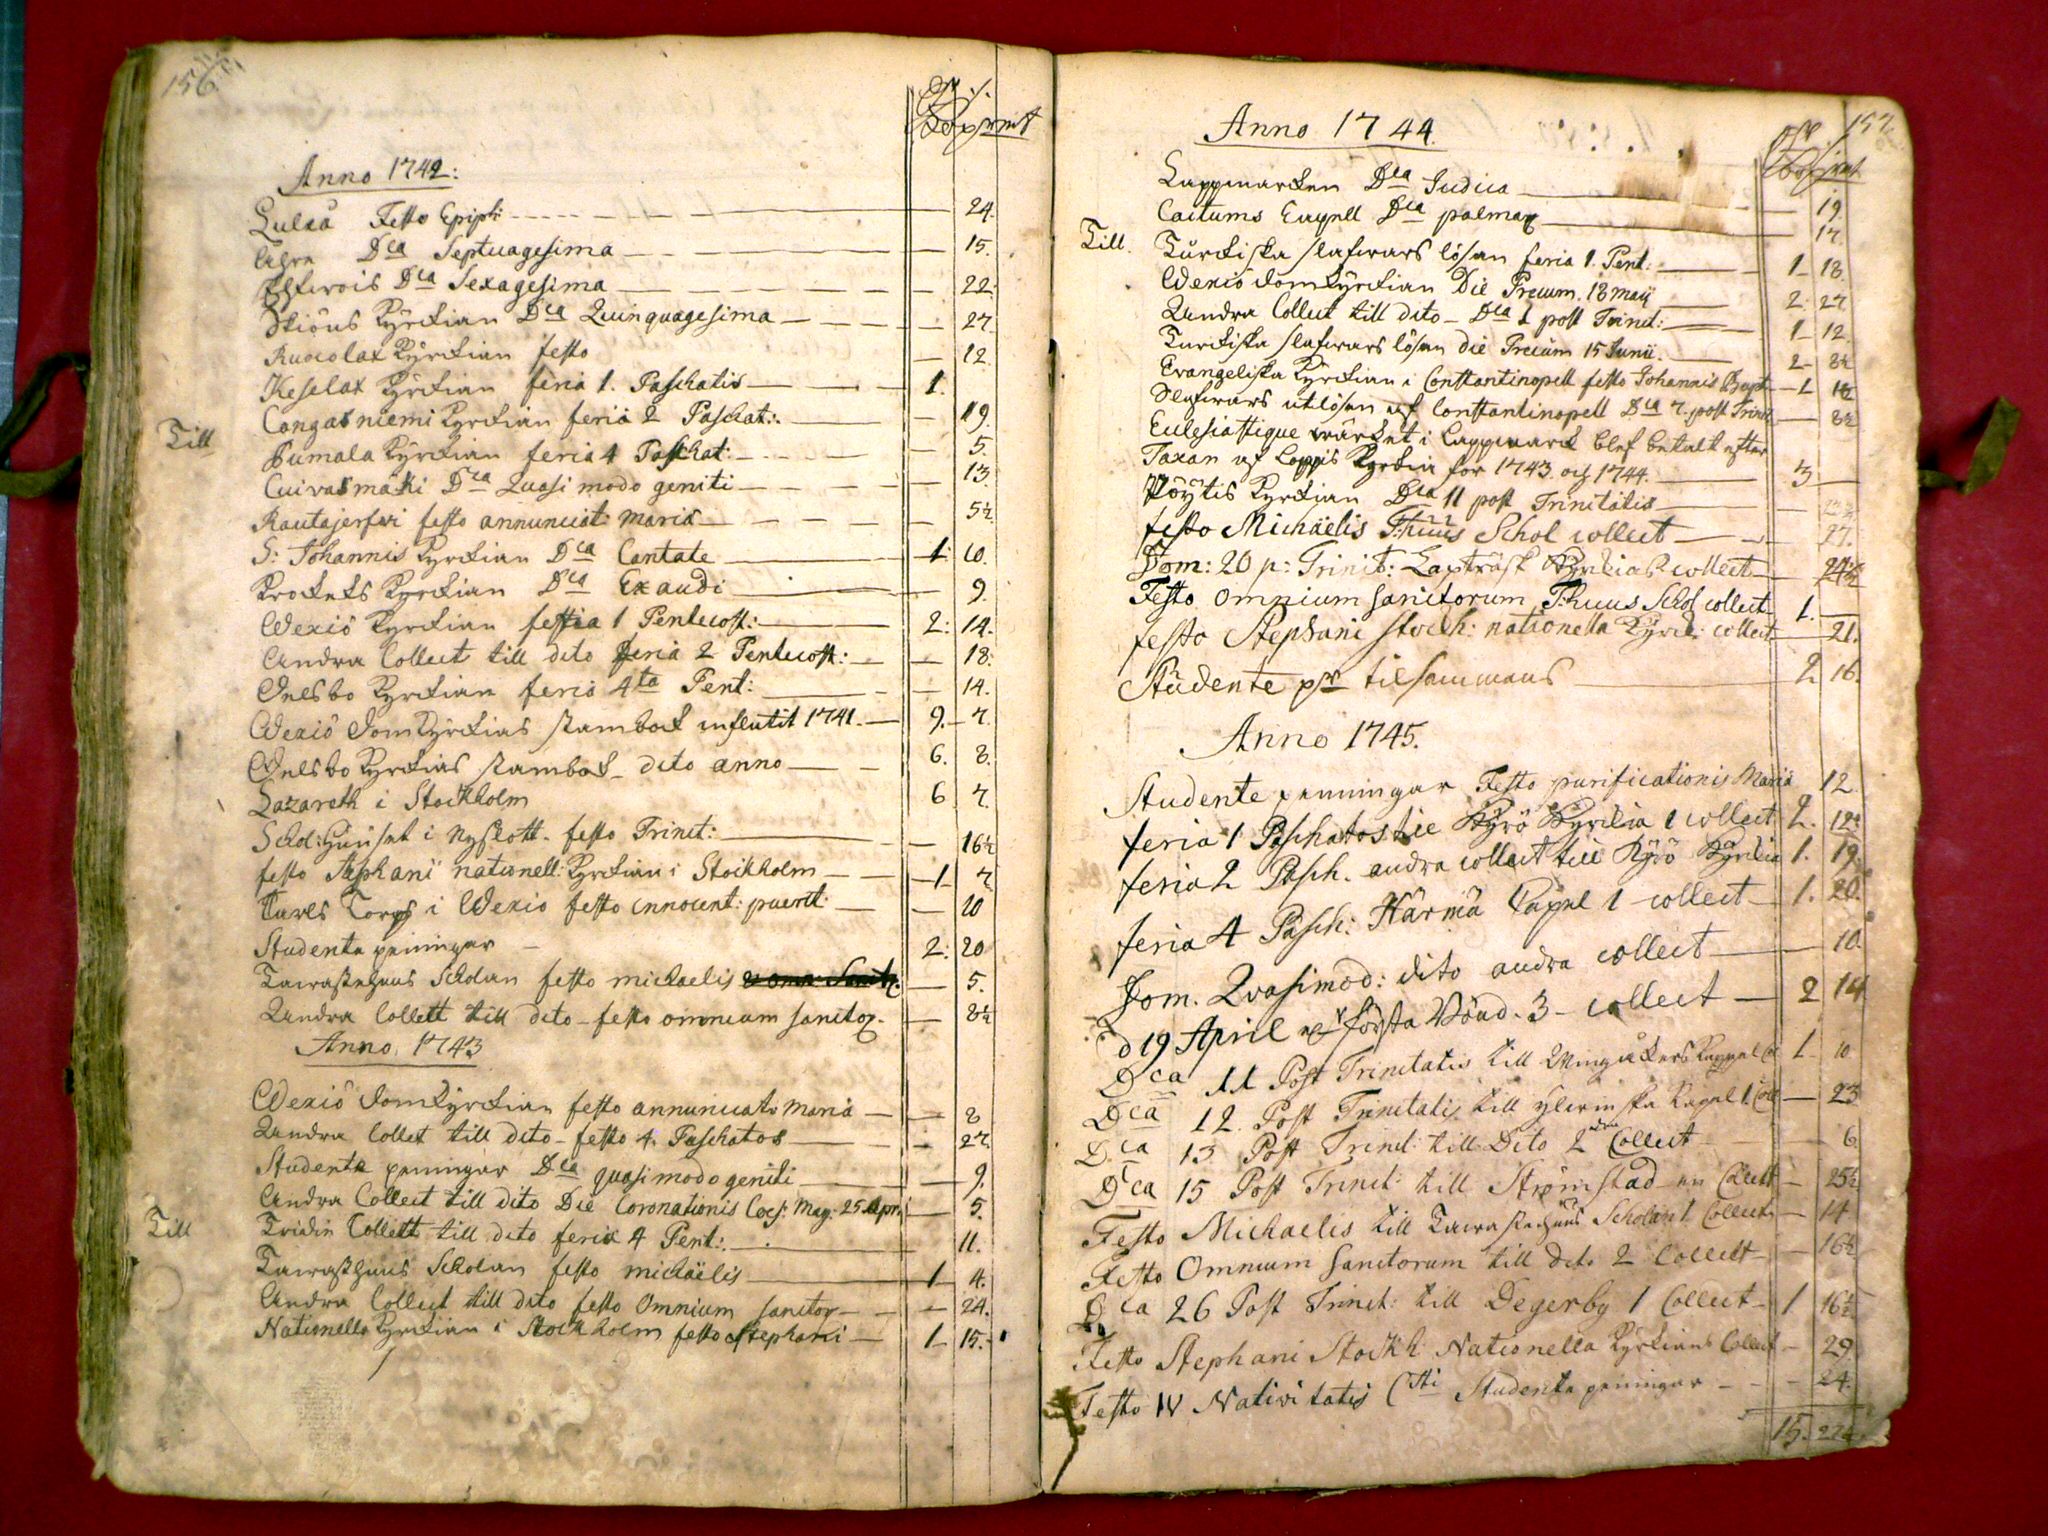 156.
Anno 1742:
Luleå Festo Epiph: 24.
Dca Septuagesima 15.
Dca Sexagesima 22
Kyrckian Dca Quinquagesima 27
Ruocolax Kyrckian festo 12
Keselax Kyrckian feria 1. Paschatis 1.
Till Cangasniemi Kyrckian feria 2 Paschat: 19.
Pumala Kyrckian feria 4 Paschat: 5.
Cuivasmäki Dca Quasimodo geniti 13
Rautajerfwi festo annunciat: Mariä 5½
S: Johannis Kyrckian Dca Cantate 1. 10.
Krokeks Kyrckian Dca Exaudi 9.
Wexiö Kyrckian feria 1 Pentecost: 2: 14.
Andra Collect till dito feria 2 Pentecost: 18.
Kyrckian feria 4ta Pent: 14.
Wexiö domkyrckias stambock influtit 1741. 9. 7.
Kyrckias stambok dito anno 6. 8.
Lazareth i Stockholm 6 7.
Schol: huuset i Nyslott. festo Trinit: 16½
festo Stephani nationell: Kyrckian i Stockholm 1 7
Torps i Wexio festo innocent: puerit: 20
Studente peningar 2: 20
Tawastehuus Scholan festo michaelis 5.
Andra Collett till dito festo omnium sanctor. 8½
Anno 1743
Wexiö domkyrckian festo annunciatio Mariä 8
Andra Collet till dito festo 4. Paschatos 27.
Studente peningar Dca quasimodogeniti 9.
Andra Collect till dito Die Coronationis Caes: Maj: 25 Apr: 5.
Till Tridin Collett till dito feria 4 Pent: 11.
Tawasthuus Scholan festo michäelis 1 4.
Andra Collect till dito festo Omnium sanctor 24.
Nationella Kyrckian i Stockholm festo Stephani 1 15.
157.
Anno 1744.
Lappmarcken Dca Judica 19.
Caitums Capell Dca palmar 17.
Till. Turckiska slafwars lösen feria 1. Pent: 1 18.
Wexiö domkyrckian Die Precum. 18 Maij 2 27
Andra Collect till dito Dca 1 post Trinit: 1 12.
Turckiska slafwars lösen die Precum 15 Junii 2 8½
Evangeliska Kyrckian i Constantinopell festo Johannis Bapt. 1 1½
Slafwars utlösen af Constantinopell Dca 7. post Trinit 8½
Eclesiastique wärcket i Lappmarck blef betalt efter
Taxan af Loppis Kyrckia för 1743. och 1744. 3
Pöytis Kyrckian Dca 11 post Trinitatis
festo Michäelis T:huus Schol collect 27.
Dom: 20 p: Trinit: Lapträsk Kyrckias collect
Festo Omnium sanctorum T:huus Schol collect 1.
festo Stephani stockh: nationella Kyrck: collect 21.
Studente pr tilsammans 2 16.
Anno 1745.
Studente penningar Festo purificationis Mariä 12
feria 1 Paschatos till Kyrö Kyrckia 1 collect 2. 12½
feria 2 Pasch. andra collect till Kyrö Kyrckia 1. 19.
feria 4 Pasch: Härmä Capel 1 collect 1. 20.
Dom. Qvasimod: dito andra collect 10.
d 19 April första Bönd. 3 collect 2 14
Dca 11 Post Trinitatis till Wingåkers Cappel Col 1 10
Dca 12. Post Trinitatis till Capel 1 Coll 23
Dca 13 Post Trinit: till Dito 2 Collect 6
Dca 15 Post Trinit: till Strömstad en Collect 25½
Festo Michaelis till Tawastehuus Scholan 1 Collect 14
Festo Omnium Sanctorum till dito 2 Collect 16½
Dca 26 Post Trinit: till Degerby 1 Collect 1 16½
Festo Stephani Stockh: Nationella Kyrckians Collect 29.
Festo IV Nativitatis Csti Studente peningar 24.
15. 22½